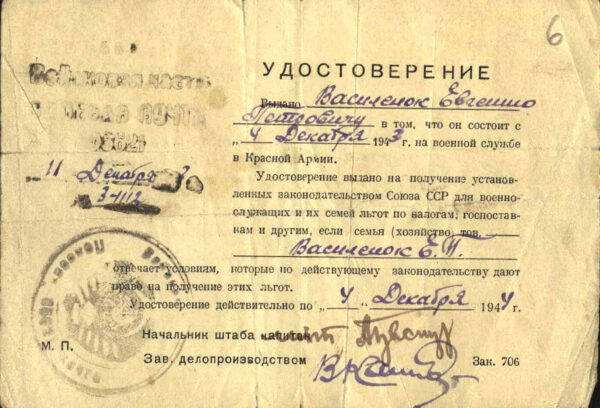 6
Войсковая часть
полевая почта
УДОСТОВЕРЕНИЕ
Выдано Василенок Евгению
Петровичу в том, что он состоит с
„4 Декабря 1943 г. на военной службе
в Красной Армии.
11 Декабря 3
3-1112
Удостоверение выдано на получение установ-
ленных законодательством Союза ССР для военно-
служащих и их семей льгот по налогам, госпостав-
кам и другим, если семья (хозяйство) тов.
Василенок Е.П.
отвечает условиям, которые по действующему законодательству дают
право на получение этих льгот.
Удостоверение действительно по „4„ Декабря 1944 г.
Начальник штаба капитан
М. П.
Зав. делопроизводством
Зак. 706